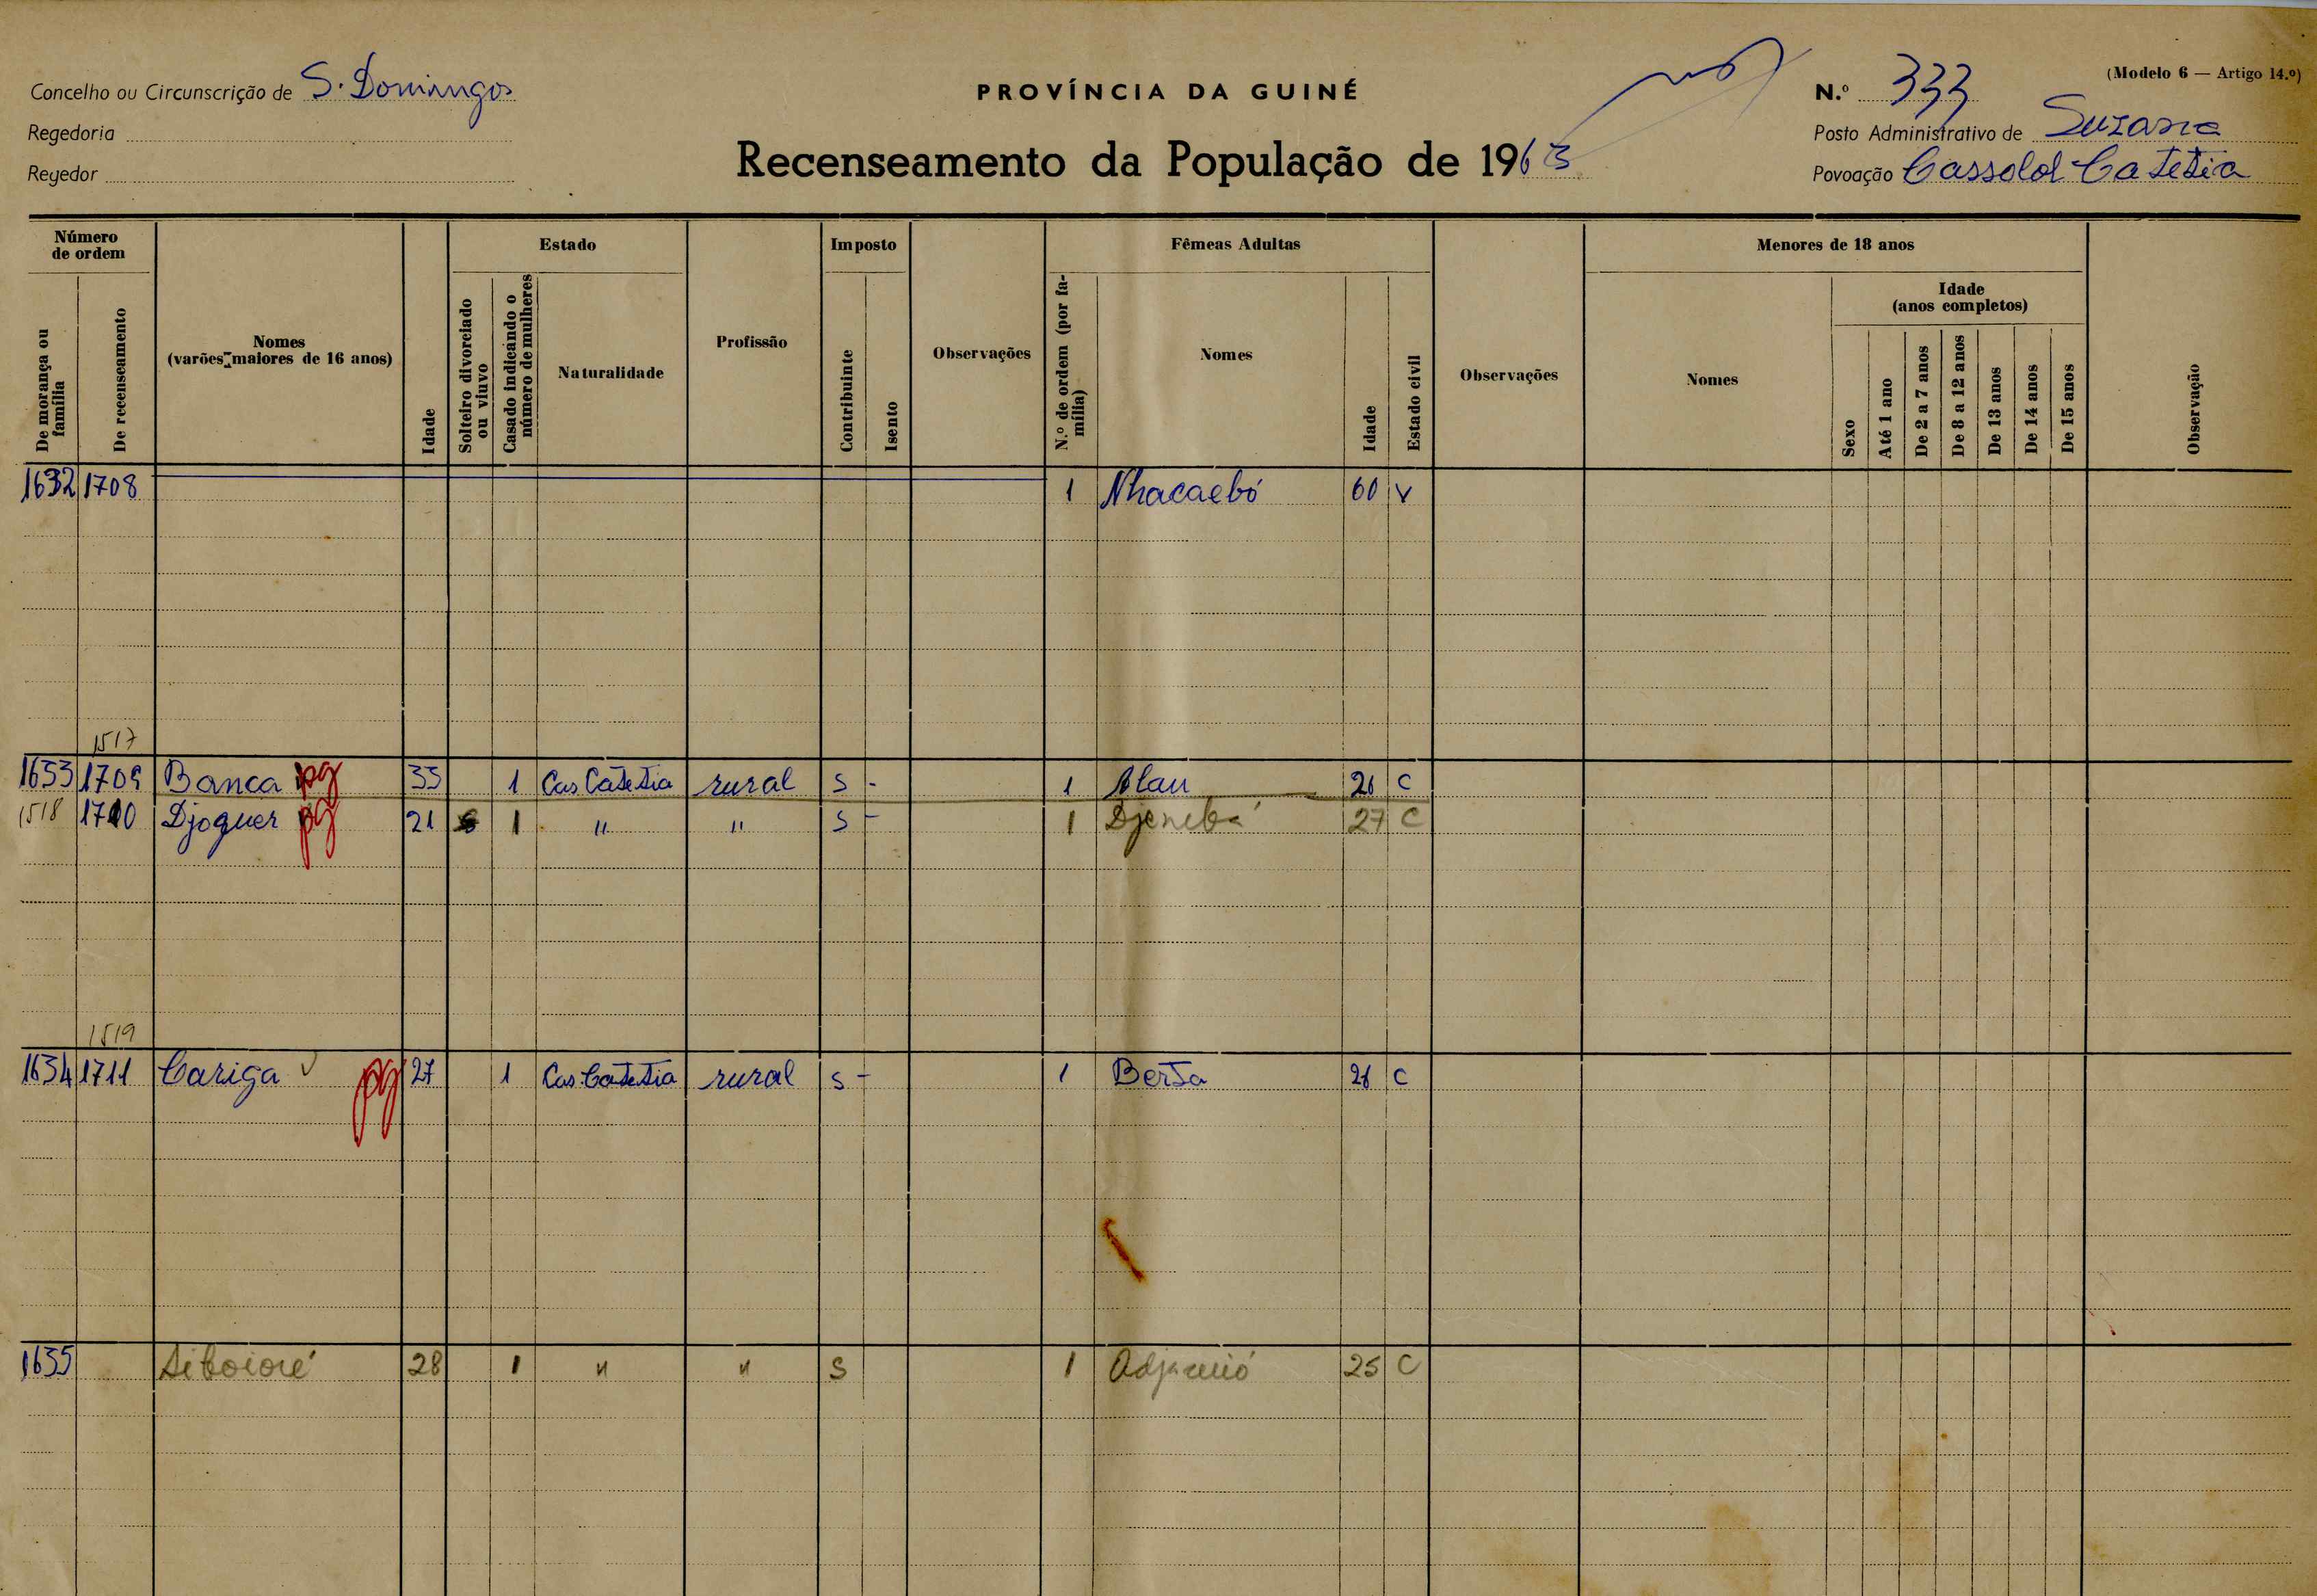 (Modelo 6 — Artigo 14.º)
Concelho ou Circunscrição de S. Domingos
PROVÍNCIA DA GUINÉ
N.º 333
Regedoria
Posto Administrativo de Suzana
Recenseamento da População de 1963
Regedor
Povoação Cassolol Catetia
Número de ordem
Estado
Imposto
Fêmeas Adultas
Menores de 18 anos
Idade (anos completos)
De morança ou família
De recenseamento
Nomes (varões maiores de 16 anos)
Idade
Solteiro divorciado ou viuvo
Casado indicando o número de mulheres
Naturalidade
Profissão
Contribuinte
Isento
Observações
N.º de ordem (por família)
Nomes
Idade
Estado civil
Observações
Nomes
Sexo
Até 1 ano
De 2 a 7 anos
De 8 a 12 anos
De 13 anos
De 14 anos
De 15 anos
Observação
1632 1708 1 Nhacaebó 60 V
1517
1633 1709 Banca pg 33 1 Cas Catetia rural S - 1 Alau 26 C
1518 1710 Djoguer pg 21 1 " " S - 1 Djenebá 27 C
1519
1634 1711 Cariga pg 27 1 Cas Catetia rural S - 1 Berta 26 C
1635 Siboioré 28 1 " " S 1 25 C